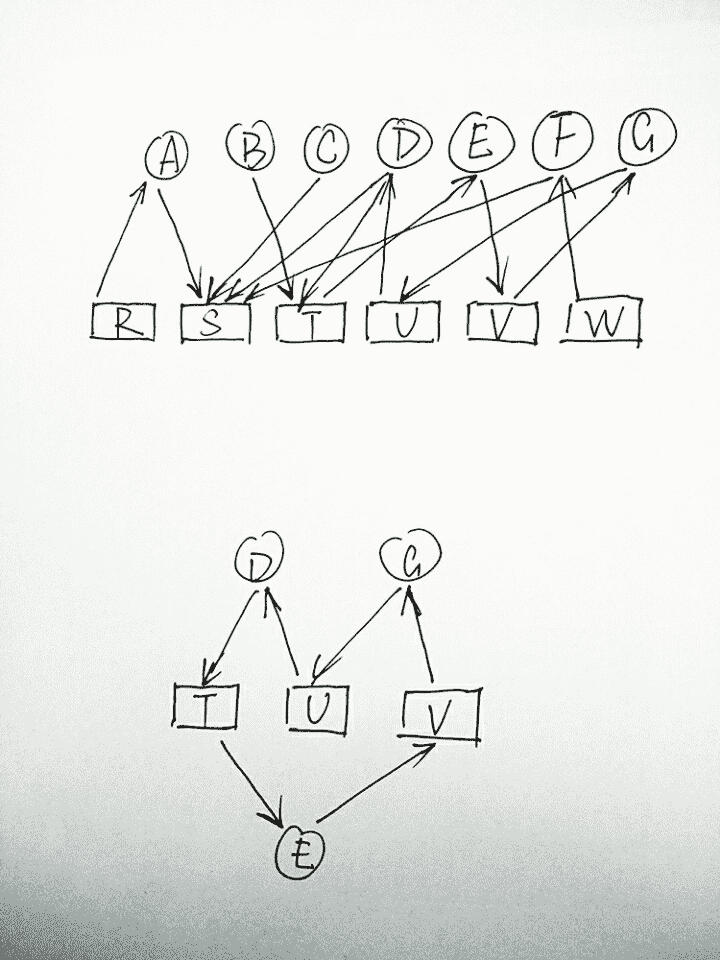 A B C D E F G
R S T U V W
D G
T U V
E